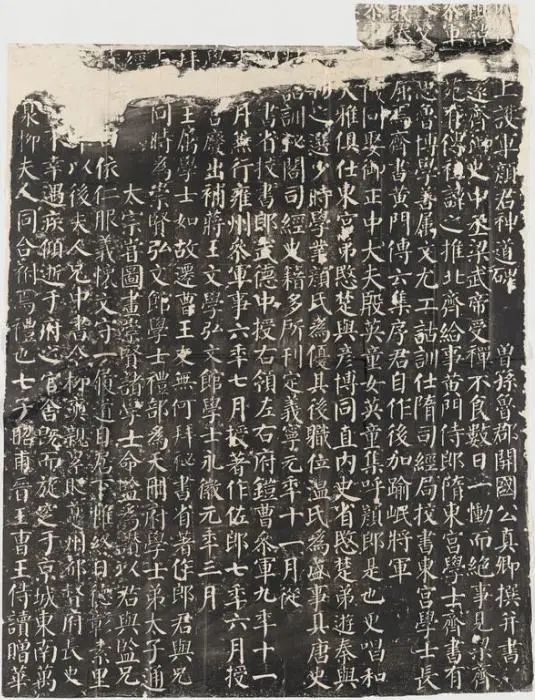 上護軍顏君神道碑 曾孫魯郡開國公真卿撰并書
遠齊御史中丞梁武帝受禪不食數日一慟而絕事見梁齊
苑有傳祖諱之推北齊給事黃門侍郎隋東宮學士齊書有
思魯博學善屬文尤工詁訓仕隋司經局校書東宮學士長
屈焉齊書黃門傳云集序君自作後加踰岷將軍
同娶御正中大夫殷英童女英童集呼顏郎是也更唱和
大雅俱仕東宮弟愍楚與彥博同直內史省愍楚弟遊秦與
物之選少時學業顏氏為優其後職位溫氏為盛事具唐史
詁訓秘閣司經史籍多所刊定義寧元年十一月從
書省校書郎武德中授右領左右府鎧曹參軍九年十一
月兼行雍州參軍事六年七月授著作佐郎七年六月授
宮廢出補蔣王文學弘文館學士永徽元年三月
王屬學士如故遷曹王友無何拜秘書省著作郎君與兄
同時為崇賢弘文館學士禮部為天冊府學士弟太子通
太宗嘗圖畫崇賢諸學士命監為讚以君與監兄
依仁服義懷文守一履道自居下帷終日德彰素里
以後夫人兄中書令柳奭親累貶夔州都督府長史
幸遇疾傾逝于府之官舍既而旋窆于京城東南萬
泉柳夫人同合祔焉禮也七子昭甫晉王曹王侍讀贈華